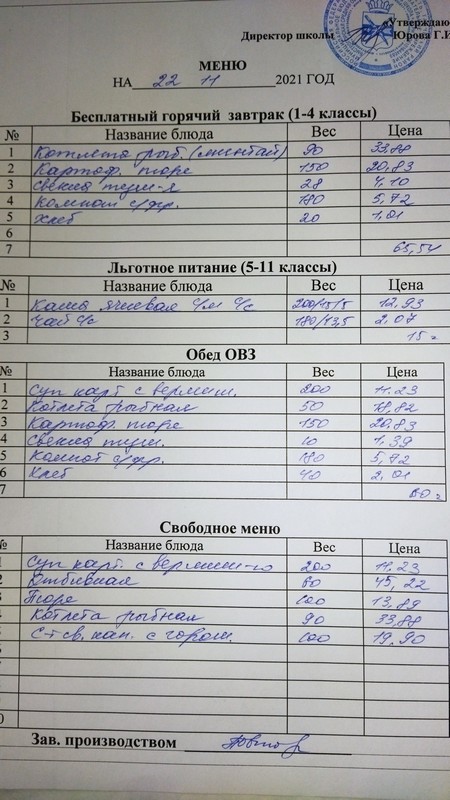 «Утверждаю
Директор школы Юрова Г.И
МЕНЮ
НА 22 11 2021 ГОД
Бесплатный горячий завтрак (1-4 классы)
№ Название блюда Вес Цена
1 Котлета рыб. (минтай) 90 33,88
2 Картоф. пюре 150 20,83
3 свекла туш-я 28 4,10
4 компот с/фр. 180 5,72
5 хлеб 20 1,01
6
7 65,54
Льготное питание (5-11 классы)
№ Название блюда Вес Цена
1 Каша ячневая с/м с/с 200/15/5 12,93
2 Чай с/с 180/13,5 2,07
3 15=
Обед ОВЗ
№ Название блюда Вес Цена
1 Суп карт с вермиш. 200 11.23
2 Котлета рыбная 50 18,82
3 Картоф. пюре 150 20.83
4 свекла туш. 10 1,39
5 Компот с/фр. 180 5,72
6 Хлеб 40 2,01
7 60=
Свободное меню
№ Название блюда Вес Цена
Суп карт. с вермиш-ю 200 11.23
Отбивная 60 45,22
Пюре 100 13,89
Котлета рыбная 90 33,88
С-т св. кап. с горош. 100 19.90
Зав. производством